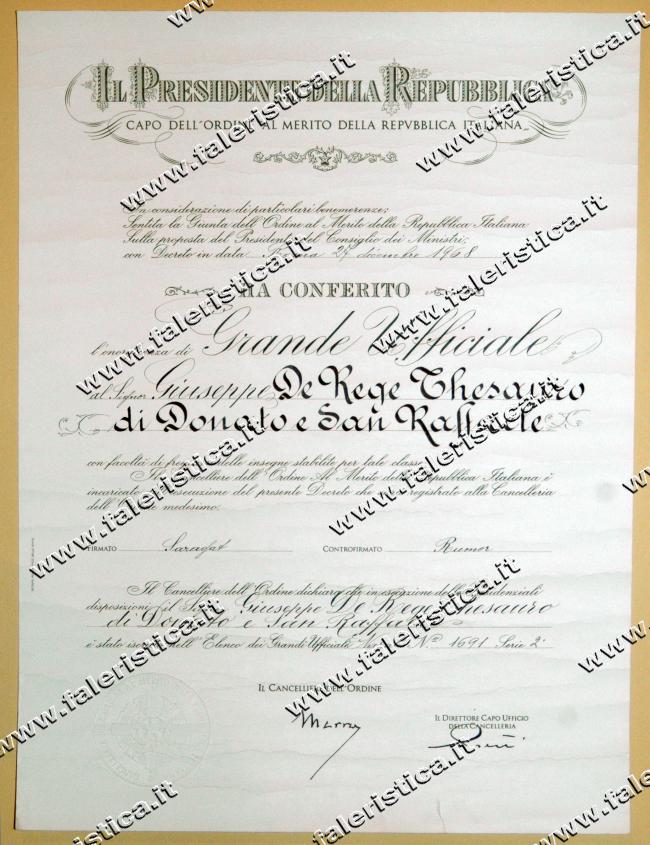 IL PRESIDENTE DELLA REPUBBLICA
CAPO DELL'ORDINE AL MERITO DELLA REPVBBLICA ITALIANA
In considerazione di particolari benemerenze;
Sentita la Giunta dell'Ordine al Merito della Repubblica Italiana
Sulla proposta del Presidente del Consiglio dei Ministri;
con Decreto in data 27 dicembre 1968
HA CONFERITO
l'onorificenza di Grande Ufficiale
al Signor Giuseppe De Rege Thesauro
di Donato e San Raffaele
con facoltà di fregiarsi delle insegne stabilite per tale classe
Il Cancelliere dell'Ordine Al Merito della Repubblica Italiana è
incaricato dell'esecuzione del presente Decreto che sarà registrato alla Cancelleria
dell'Ordine medesimo.
FIRMATO Saragat CONTROFIRMATO Rumor
Il Cancelliere dell'Ordine dichiara che in esecuzione delle Presidenziali
disposizioni il Signor Giuseppe De Rege Thesauro
di Donato e San Raffaele
è stato iscritto nell'Elenco dei Grandi Ufficiali N° 1691 Serie 2ª
IL CANCELLIERE DELL'ORDINE
IL DIRETTORE CAPO UFFICIO
DELLA CANCELLERIA
www.faleristica.it